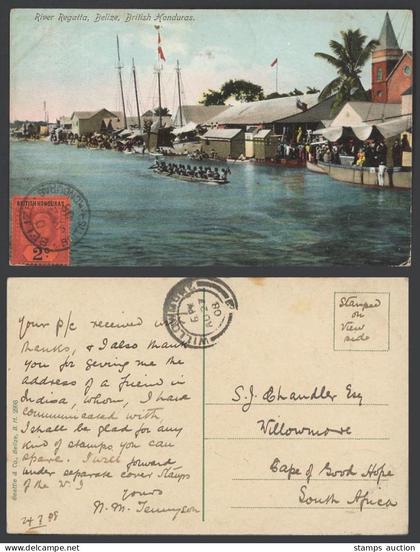 River Regatta, Belize, British Honduras.
BRITISH HONDURAS
2c
Your p/c received with
thanks, & I also thank
you for giving me the
address of a friend in
Indisa, whom, I have
communicated with.
I shall be glad for any
kind of stamps you can
spare. I will forward
under separate cover stamps
of the W I
yours
N. M. Tennyson
24 7 08
Beattie & Co., Belize, B. H.
WILLOWMORE
AU 27
08
Stamped
on
View
side
S. J. Chandler Esq
Willowmore
Cape of Good Hope
South Africa
www.delcampe.net